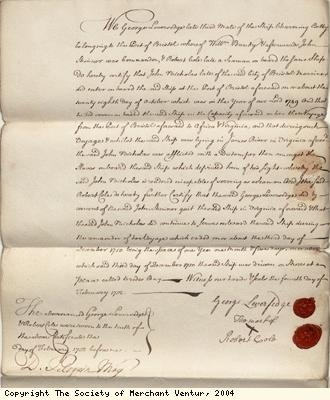 We George Loveridge late third Mate of the Ship Charming Sally
belonging to the Port of Bristol whereof Willm Bounty & afterwards John
Skinner was Commander, & Robert Cole late a Seaman on board the same Ship
Do hereby certify that John Nicholas late of the said City of Bristol Mariner
did enter on board the said Ship at the Port of Bristol aforesaid on or about the
twenty eighth day of October which was in the Year of our Lord 1749 And that
he did remain on board the said Ship in the Capacity aforesaid
from the Port of Bristol aforesaid to Africa & Virginia, and that during such
Voyages & whilst the said Ship was lying in James River in Virginia aforesaid
the said John Nicholas was afflicted with a Distemper then amongst the
Slaves on board the said Ship which deprived him of his Sight whereby the
said John Nicholas is rendered incapable of serving as a Seaman And I the said
Robert Cole do hereby further Certify that the said George Loveridge
of the said John Skinner quit the said Ship in Virginia aforesaid & that
the said John Nicholas did continue to remain on board the said Ship during
the remainder of her Voyage which ended on or about the third day of
December 1750 being the space of one Year one Month & five days
which said third day of December 1750 the said Ship was driven on Shore at a
place called Bay Witness our hands & Seals the fourth day of
February 1752
The abovenamed George Loveridge
& Robert Cole were sworn to the truth of
the above Certificate the
day of February 1752 before me
George Loveridge
The mark of
X
Robert Cole
Copyright The Society of Merchant Ventur, 2004